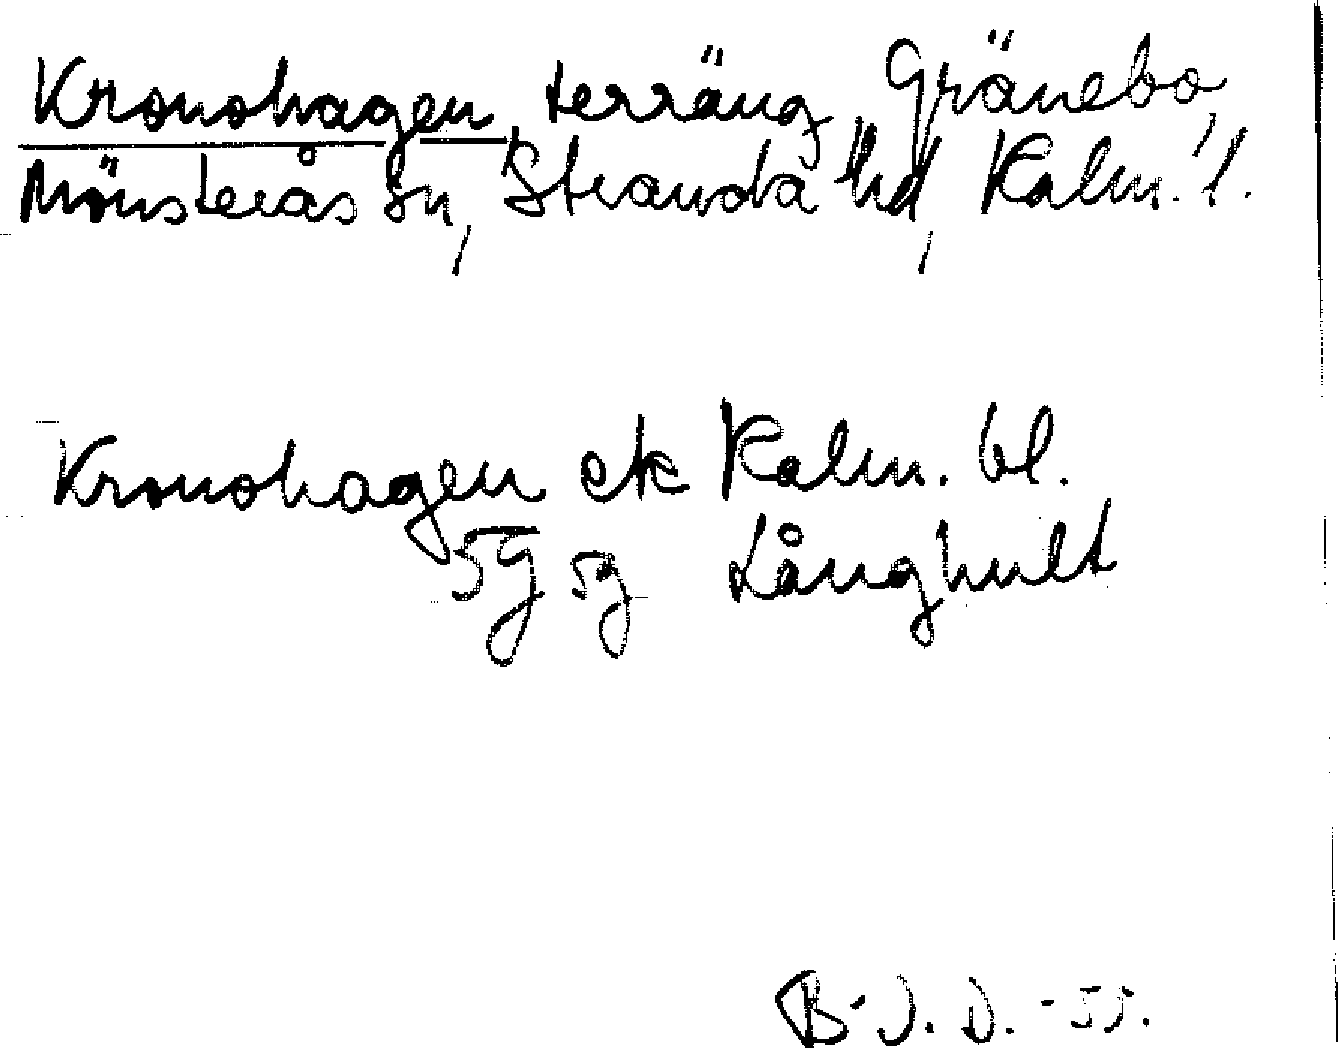 Kronohagen, terräng, Gränebo,
Mönsterås sn, Stranda hd, Kalm. l.
Kronohagen ek Kalm. bl.
5G 5g Långhult
B-J. D. -55.